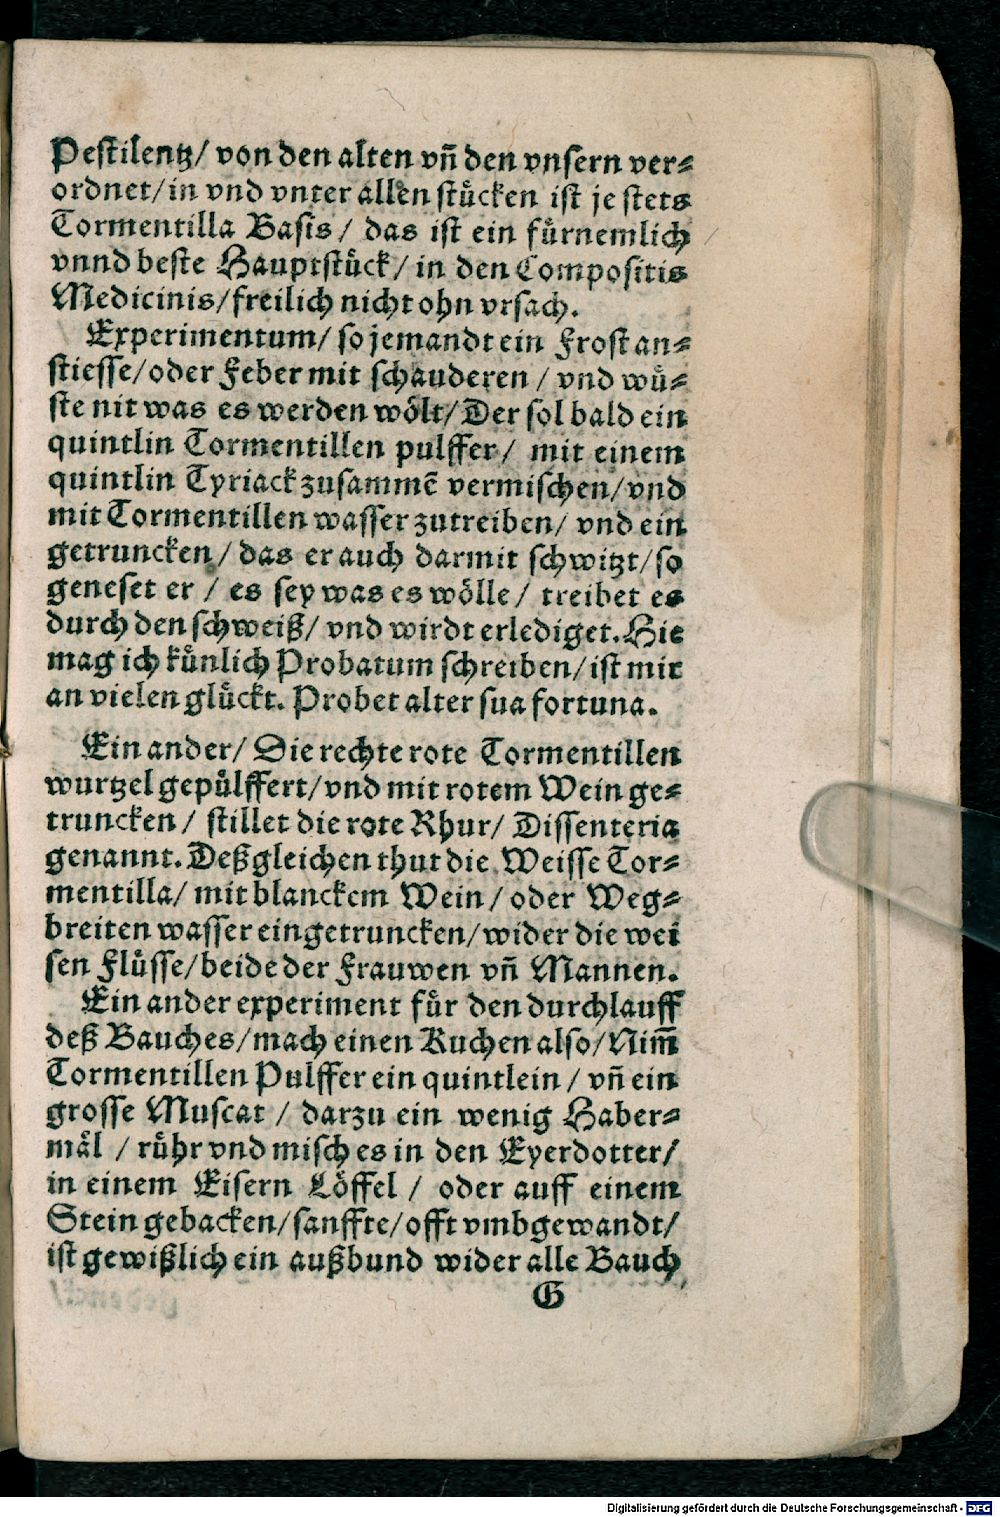 Pestilentz/ von den alten vñ den vnsern ver⸗
ordnet/in vnd vnter allen stuͤcken ist je stets
Tormentilla Basis/ das ist ein fuͤrnemlich
vnnd beste Hauptstuͤck/ in den Compositis
Medicinis/freilich nicht ohn vrsach.
Experimentum/ so jemandt ein Frost an⸗
stiesse/oder Feber mit schauderen / vnd wuͤ⸗
ste nit was es werden woͤlt/ Der sol bald ein
quintlin Tormentillen pulffer/ mit einem
quintlin Tyriack zusammẽ vermischen/ vnd
mit Tormentillen wasser zutreiben/ vnd ein
getruncken/ das er auch darmit schwitzt/so
geneset er / es sey was es woͤlle/ treibet es
durch den schweiß/ vnd wirdt erlediget. Hie
mag ich kuͤnlich Probatum schreiben/ist mir
an vielen gluͤckt. Probet alter sua fortuna.
Ein ander/ Die rechte rote Tormentillen
wurtzel gepuͤlffert/vnd mit rotem Wein ge⸗
truncken/ stillet die rote Rhur/ Dissenteria
genannt. Deßgleichen thut die Weisse Tor⸗
mentilla/ mit blanckem Wein/ oder Weg⸗
breiten wasser eingetruncken/wider die wei
sen Fluͤsse/beide der Frauwen vñ Mannen.
Ein ander experiment fuͤr den durchlauff
deß Bauches/mach einen Kuchen also/Nim̃
Tormentillen Pulffer ein quintlein / vñ ein
grosse Muscat / darzu ein wenig Haber⸗
maͤl / ruͤhr vnd misch es in den Eyerdotter/
in einem Eisern Loͤffel / oder auff einem
Stein gebacken/sanffte/offt vmbgewandt/
ist gewißlich ein außbund wider alle Bauch
G
Digitalisierung gefördert durch die Deutsche Forschungsgemeinschaft - DFG